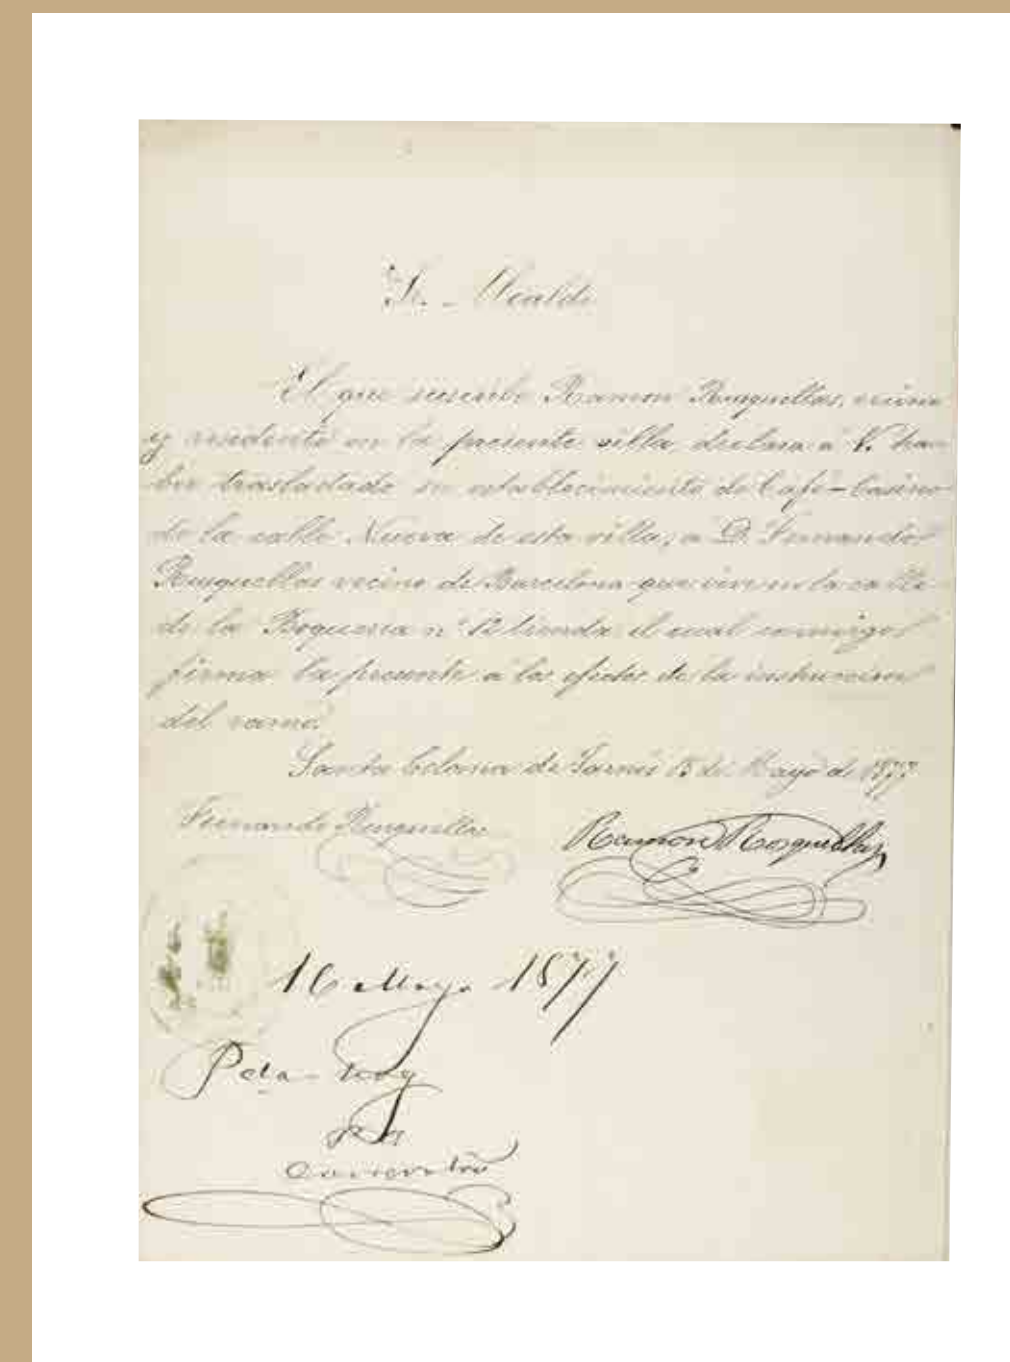 Sr. Alcalde
El que suscribe Ramon Rusquellas, vecino
y residente en la presente villa, declara á V. ha-
ber trasladado su establecimiento de Café-Casino
de la calle Nueva de esta villa, a D. Fernando
Rusquellas vecino de Barcelona que vive en la calle
de la Boqueria nº 12 tienda el cual conmigo
firma la presente a los efectos de la instruccion
del ramo.
Santa Coloma de Farnés 15 de Mayo de 1877
Fernando Rusquellas
Ramon Rosquellas
16 Mayo 1877